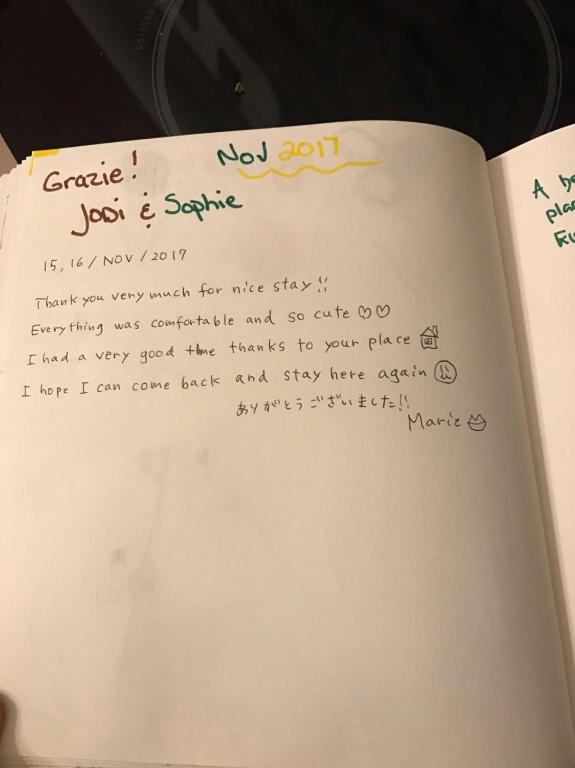 induction
Grazie! Nov 2017
Jodi & Sophie
15, 16 / NOV / 2017
Thank you very much for nice stay!!
Everything was comfortable and so cute ♡♡
I had a very good time thanks to your place
I hope I can come back and stay here again
ありがとうございました!!
Marie
A